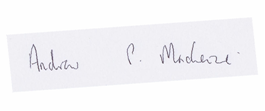 Andrew P. Mackenzie